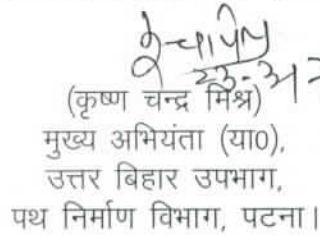 (कृष्ण चन्द्र मिश्र)
मुख्य अभियंता (या0),
उत्तर बिहार उपभाग,
पथ निर्माण विभाग, पटना।